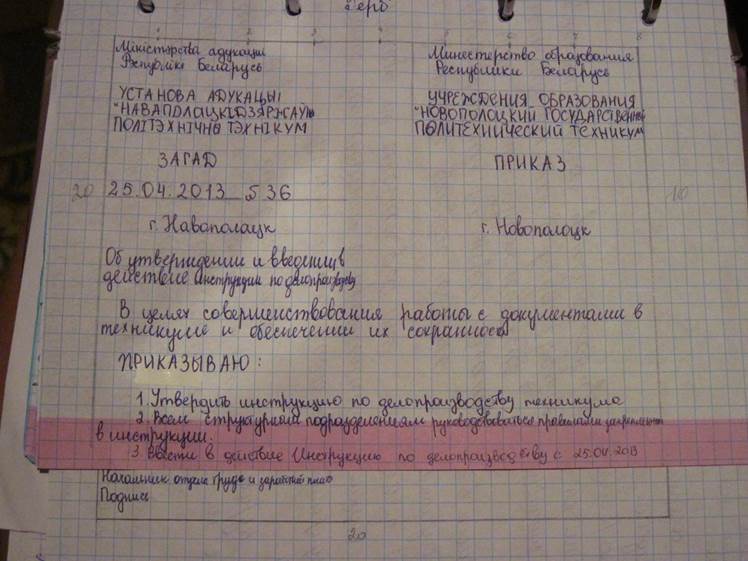 Міністэрства адукацыі
Рэспублікі Беларусь
Министерство образования
Республики Беларусь
УСТАНОВА АДУКАЦЫІ
"НАВАПОЛАЦКІ ДЗЯРЖАЎНЫ
ПОЛІТЭХНІЧНЫ ТЭХНІКУМ
УЧРЕЖДЕНИЯ ОБРАЗОВАНИЯ
"НОВОПОЛОЦКИЙ ГОСУДАРСТВЕННЫЙ
ПОЛИТЕХНИЧЕСКИЙ ТЕХНИКУМ
ЗАГАД
ПРИКАЗ
20 25.04.2013 536 10
г. Навополацк
г. Новополоцк
Об утверждении и введении в
действие инструкции по делопроизводству
В целях совершенствования работы с документами в
техникуме и обеспечении их сохранности
ПРИКАЗЫВАЮ:
1. Утвердить инструкцию по делопроизводству техникума
2. Всем структурным подразделениям руководствоваться правилами
в инструкции.
3. Ввести в действие Инструкцию по делопроизводству с 25.04.2013
Начальник отдела труда и
Подпись
20